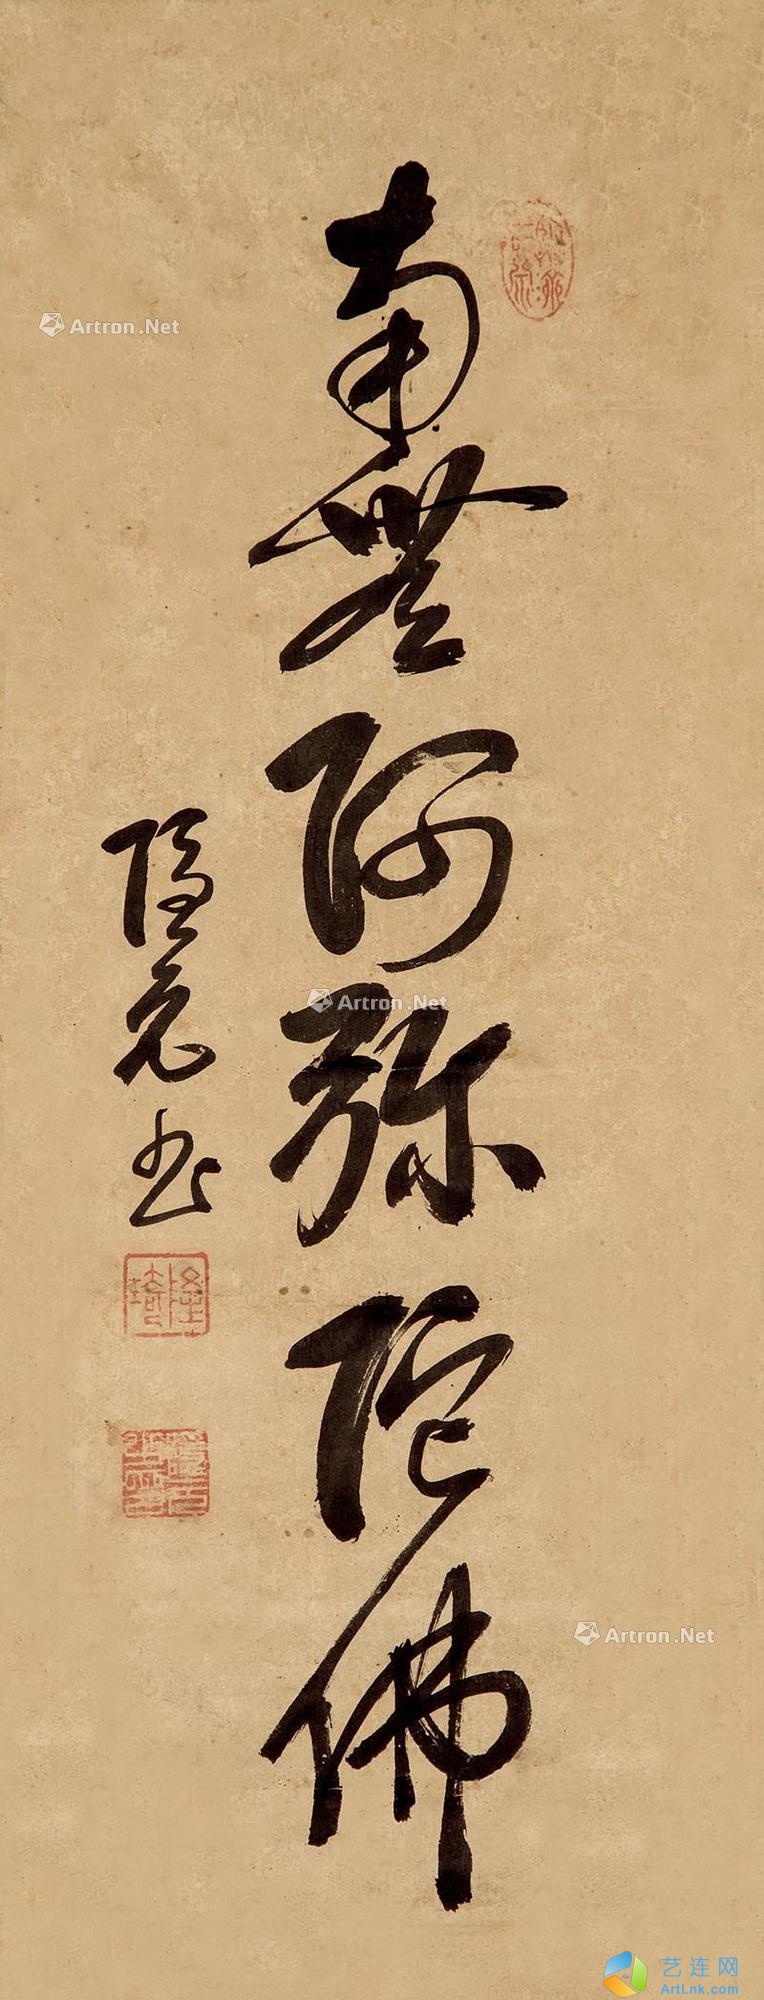 南無阿弥陀佛
隱元书
隆琦
Artron.Net
Artron.Net
Artron.Net
艺连网
ArtLnk.com